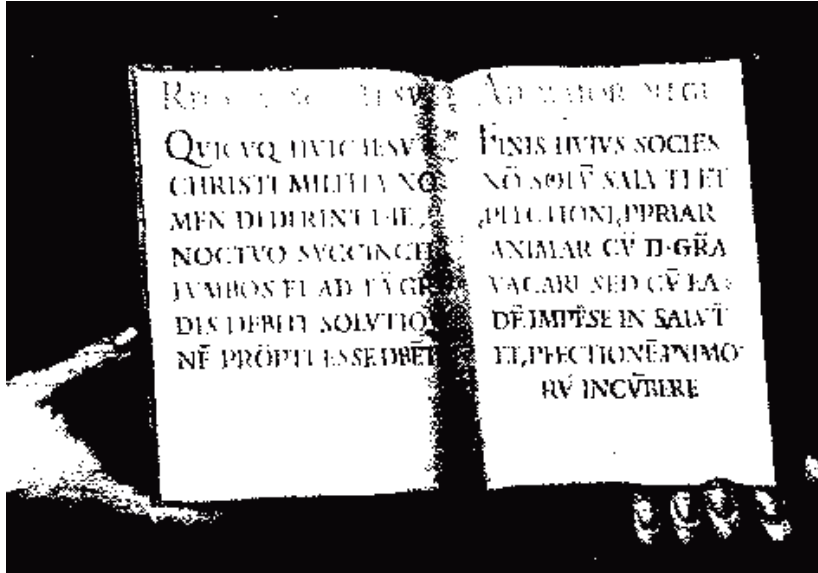 QVICVQ HVIC IESV
CHRISTI MILITIA NO
MEN DEDERINT DIE,
NOCTVO SVCCINCTI
LVMBOS ET AD TĀ GR
DIS DEBITI SOLVTIO
NĒ PRŌPTI ESSE DBĒT
AD MAIOR
FINIS HVIVS SOCIES
NŌ SOLV̄ SALVTI ET
PFECTIONI PPRIAR
ANIMAR CV̄ D·GR̄A
VACARE SED CV̄ EA
DĒ IMPĒSE IN SALVT̄
ET PFECTIONĒ PXIMO
RV̄ INCV̄BERE